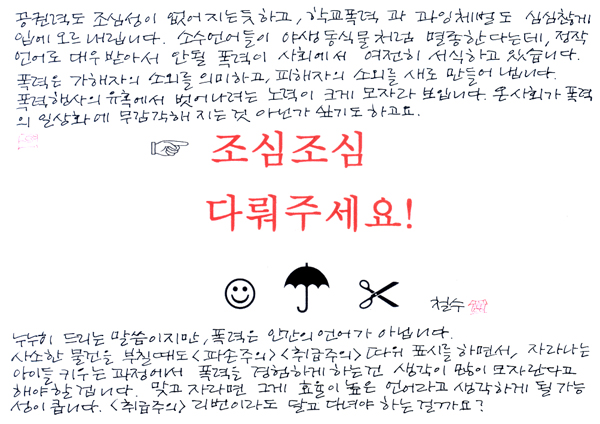 공권력도 조심성이 없어 지는듯 하고, 학교폭력 과 과잉체벌도 심심찮게
입에 오르 내립니다. 소수언어들이 야생 동식물 처럼 멸종한 다는데, 정작
언어로 대우 받아서 안될 폭력이 사회에서 여전히 서식하고 있습니다.
폭력은 가해자의 소외를 의미하고, 피해자의 소외를 새로 만들어 냅니다.
폭력행사의 유혹에서 벗어나려는 노력이 크게 모자라 보입니다. 온 사회가 폭력
의 일상화에 무감각해 지는 것 아닌가 싶기도 하고요.
조심조심
다뤄주세요!
철수
누누히 드리는 말씀이지만, 폭력은 인간의 언어가 아닙니다.
사소한 물건을 부칠때도 <파손주의> <취급주의> 따위 표시를 하면서, 자라나는
아이들 키우는 과정에서 폭력을 경험하게 하는건 생각이 많이 모자란다고
해야 할 겁니다. 맞고 자라면 그게 효율이 높은 언어라고 생각하게 될 가능
성이 큽니다. <취급주의> 리번이라도 달고 다녀야 하는 걸까요?